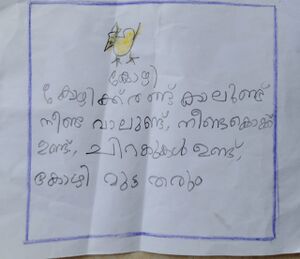 കോഴി
കോഴിക്ക് രണ്ട് കാലുണ്ട്
നീണ്ട വാലുണ്ട്, നീണ്ടകൊക്ക്
ഉണ്ട്, ചിറകുകൾ ഉണ്ട്,
കോഴി മുട്ട തരും